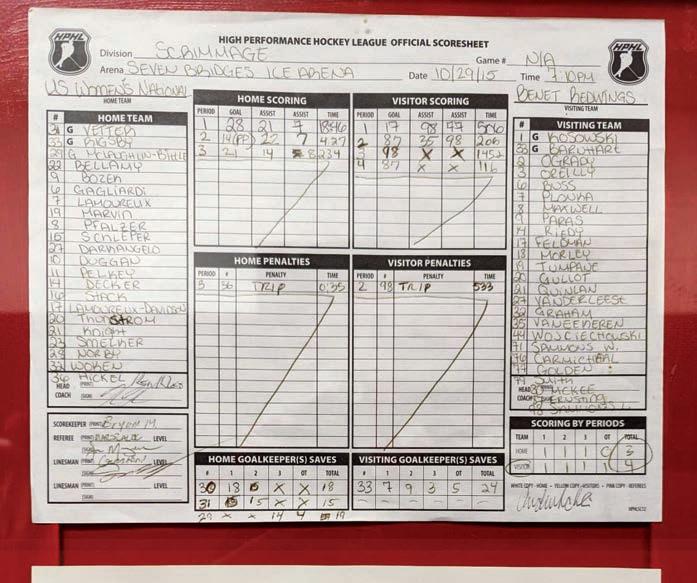 HPHL
HIGH PERFORMANCE HOCKEY LEAGUE OFFICIAL SCORESHEET
HPHL
Division SCRIMMAGE Game # N/A
Arena SEVEN BRIDGES ICE ARENA Date 10/29/15 Time 7:10PM
US WOMEN'S NATIONAL
HOME TEAM
BENET REDWINGS
VISITING TEAM
# HOME TEAM
31 G VETTER
33 G RIGSBY
29 G MCLAUGHLIN-BITTLE
22 BELLAMY
9 BOZEK
6 GAGLIARDI
7 LAMOUREUX
19 MARVIN
8 PFALZER
15 SCHLEPER
27 DARKANGELO
10 DUGGAN
11 PELKEY
14 DECKER
16 STACK
17 LAMOUREUX-DAVIDSON
20 THUNSTROM
21 Knight
23 SMELKER
28 NORBY
32 WOKEN
36 HICKEL
HEAD COACH (PRINT)
(SIGN)
HOME SCORING
PERIOD GOAL ASSIST ASSIST TIME
1 28 21 7 1846
2 14(PP) 22 7 427
3 21 14 8 234
VISITOR SCORING
PERIOD GOAL ASSIST ASSIST TIME
1 17 98 77 506
2 87 35 98 206
3 98 X X 1452
4 87 X X 116
HOME PENALTIES
PERIOD # PENALTY TIME
3 36 TRIP 0:35
VISITOR PENALTIES
PERIOD # PENALTY TIME
2 98 TRIP 533
# VISITING TEAM
1 G KOSOWSKI
33 G BARNHART
2 OGRADY
3 OREILLY
6 BUSS
7 PLONKA
8 MAXWELL
9 PARAS
14 RIEDY
17 FELDMAN
18 MORLEY
19 TUMPANE
20 GULLOT
21 QUINLAN
27 VANDERLEESE
32 GRAHAM
35 VANEENEREN
44 WOJCIECHOWSKI
71 SAMMONS W.
76 CARMICHEAL
77 GOLDEN
79 Smith
MCKEE
98 SAMMONS
HEAD COACH
SCOREKEEPER (PRINT) Bryon M.
REFEREE (PRINT) LEVEL
(SIGN)
LINESMAN (PRINT) LEVEL
(SIGN)
LINESMAN (PRINT) LEVEL
(SIGN)
HOME GOALKEEPER(S) SAVES
# 1 2 3 OT TOTAL
30 18 X X 18
31 15 X X 15
29 X X 14 4 19
VISITING GOALKEEPER(S) SAVES
# 1 2 3 OT TOTAL
33 7 9 3 5 24
SCORING BY PERIODS
TEAM 1 2 3 OT TOTAL
HOME 1 1 1 0 3
VISITOR 1 1 1 1 4
WHITE COPY - HOME • YELLOW COPY - VISITORS • PINK COPY - REFEREES